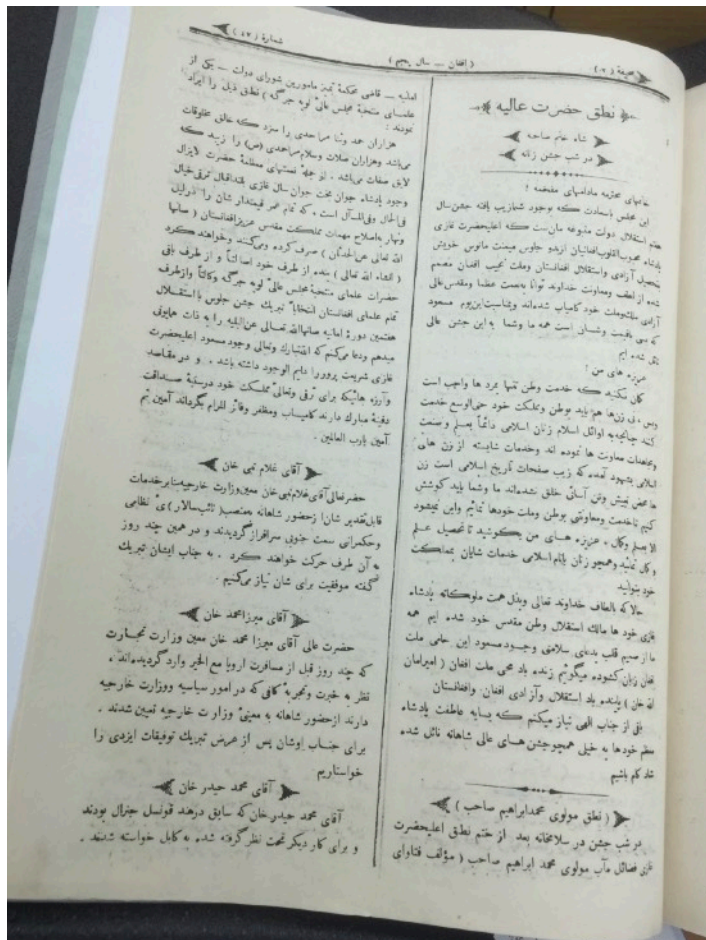 صحیفهٔ (۲)
( افغان — سال پنجم )
شمارهٔ ( ٤٢ )
نطق حضرت عالیه
شاه خانم صاحبه
در شب جشن زنانه
خانمهای محترمه مادامهای مفخمه !
این مجلس باسعادت که بوجود شمازیب یافته جشن سال
هفتم استقلال دولت متبوعه مان‌ست که اعلیحضرت غازی
پادشاه محبوب‌القلوب افغانیان از بدو جلوس میمنت مانوس خویش
بتحصیل آزادی واستقلال افغانستان وملت نجیب افغان مصمم
شده از لطف و معاونت خداوند توانا به‌نعمت عظما و مقدس عالی
آزادی ملك وملت خود کامیاب شده‌اند و بمناسبت این یوم مسعود
که سی یافیت وشان است همه ما وشما به این جشن عالی
نائل شده ایم
عزیزه های من !
گمان مکنید که خدمت وطن تنها بمرد ها واجب است
وبس ، نی زن‌ها هم باید بوطن و مملکت خود حتی‌الوسع خدمت
کنند چنانچه به اوائل اسلام زنان اسلامی دائماً بعلم و صنعت
و مجاهدات معاونت ها نموده اند وخدمات شایسته از زن های
اسلامی بشهود آمده که زیب صفحات تاریخ اسلامی است زن
ها محض بعیش وتن آسانی خلق نشده‌اند ما وشما باید کوشش
کنیم تاخدمت ومعاونتی بوطن وملت خودها نمائیم واین نمیشود
الا بعلم وکمال ، عزیزه های من بکوشید تا تحصیل علم
و کمال نمائید وهمچو زنان باباء اسلامی خدمات شایان بمملکت
خود بنمائید
حالا که بالطاف خداوند تعالی وبذل همت ملوکانه پادشاه
غازی خود ها مالك استقلال وطن مقدس خود شده ایم همه
ما از صمیم قلب بدعای سلامتی وجود مسعود این حامی ملت
افغان زبان کشوده میگوئیم زنده باد محی ملت افغان ( امیرامان
الله خان ) پاینده باد استقلال وآزادی افغان وافغانستان
باقی از جناب الهی نیاز میکنم که بسایه عاطفت پادشاه
معظم خودها به خیلی همچو جشن های عالی شاهانه نائل شده
شاد کام باشیم
( نطق مولوی محمد ابراهیم صاحب )
در شب جشن در سلامخانه بعد از ختم نطق اعلیحضرت
غازی فضائل مآب مولوی محمد ابراهیم صاحب ( مؤلف فتاوای
امانیه — قاضی محکمهٔ تمیز مامورین شورای دولت — یکی از
علمای منتخبهٔ مجلس عالیٔ لویه جرگه ) نطق ذیل را ایراد
نمودند :
هزاران حمد وثنا مراحدی را سزد که خالق مخلوقات
می‌باشد وهزاران صلات وسلام مراحمدی (ص) را زیبد که
لایق صفات می‌باشد . از جهٔ نعمتهای معظمهٔ حضرت لایزال
وجود پادشاه جوان بخت جوان سال غازی بلنداقبال ترقی خیال
فی‌الحال وفی‌المآل است . که تمام عمر قیمتدار شان را درلیل
ونهار به‌اصلاح مهمات مملکت مقدس عزیز افغانستان ( صانها
الله تعالی عن‌الحدثان ) صرف کرده ومی‌کنند وخواهند کرد
( انشاء الله تعالی ) بنده از طرف خود اصالتاً و از طرف باقی
حضرات علمای منتخبهٔ مجلس عالیٔ لویه جرگه وکالتاً وازطرف
تمام علمای افغانستان انتخاباً تبریك جشن جلوس بااستقلال
هفتمین دورهٔ امانیه صانها‌الله تعالی عن‌البلیه را به ذات همایونی
میدهم ودعا میکنم که الله‌تبارك وتعالی وجود مسعود اعلیحضرت
غازی شریعت پرور را دایم الوجود داشته باشد . و در مقاصد
وآرزه هائیکه برای ترقی وتعالیٔ مملکت خود درسینهٔ صداقت
دفینهٔ مبارك دارند کامیاب ومظفر وفائز المرام بگرداند آمین ثم
آمین یارب العالمین .
آقای غلام نبی خان
حضرتعالی آقای غلام‌نبی خان معین وزارت خارجیه بنابر خدمات
قابل تقدیر شان از حضور شاهانه به‌منصب ( نائب سالار ) یٔ نظامی
وحکمرانی سمت جنوبی سرافراز گردیدند و در همین چند روز
به آن طرف حرکت خواهند کرد . به جناب ایشان تبریك
گفته موفقیت برای شان نیاز می‌کنیم .
آقای میرزا محمد خان
حضرت عالی آقای میرزا محمد خان معین وزارت تجارت
که چند روز قبل از مسافرت اروپا مع الخیر وارد گردیده‌اند ،
نظر به خبرت وتجربهٔ کافی که در امور سیاسیه ووزارت خارجیه
دارند ازحضور شاهانه به معینیٔ وزارت خارجیه تعیین شدند .
برای جناب اوشان پس از عرض تبریك توفیقات ایزدی را
خواستاریم
آقای محمد حیدر خان
آقای محمد حیدر خان که سابق درهند قونسل جنرال بودند
و برای کار دیگر تحت نظر گرفته شده به کابل خواسته شدند .